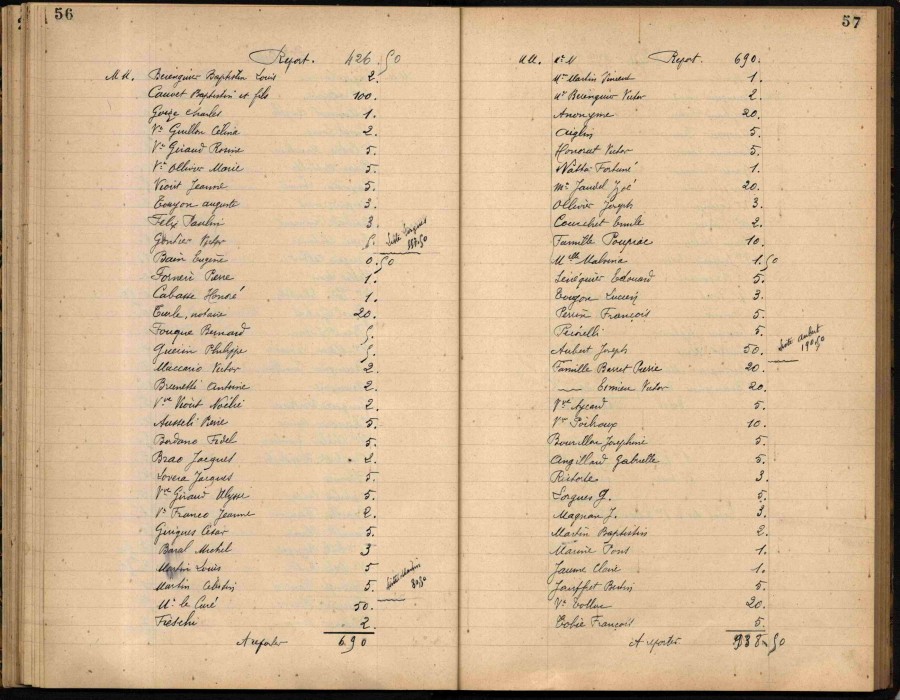 56
Report. 426.50
M.M. Bérenguier Baptistin Louis 2.
Cauvet Baptistin et fils 100.
Gouze Charles 1.
Vve Guillon Célina 2.
Vve Giraud Rosine 5.
Vve Ollivier Marie 5.
Viout Jeanne 5.
Auguste 3.
Félix Paulin 3.
Gontier Victor 5.
Liste
Bain Eugène 0.50
Forneri Pierre 1.
Cabasse Honoré 1.
notaire 20.
Fouque Bernard 5.
Guérin Philippe 5.
Maccario Victor 2.
Brunetti Antoine 2.
Vve Viout Noélie 2.
Ausseli Pierre 5.
Bordano Fidel 5.
Brao Jacques 2.
Lovera Jacques 5.
Vve Giraud Ulysse 5.
Vve Franco Jeanne 2.
Guigues César 5.
Baral Michel 3
Martin Louis 5
Liste Martin
80,50
Martin Célestin 5.
Mr le Curé 50.
Fieschi 2.
A reporter 690
57
M.M. Report. 690.
Mr Martin Vincent 1.
Mr Bérenguier Victor 2.
Anonyme 20.
Aiglin 5.
Honorat Victor 5.
Natta Fortuné 1.
Jaudel Zoé 20.
Ollivier Joseph 3.
Courchet Emile 2.
Famille 10.
Melle Malvina 1.50
Sénéquier Edouard 5.
Lucien 3.
Perrin François 5.
5.
Liste Aubert
190,50
Aubert Joseph 50.
Famille Barret Pierre 20.
— Ermieu Victor 20.
Vve Aycard 5.
Vve 10.
Bourrillon Joséphine 5.
Angillard Gabrielle 5.
3.
Sorgues G. 5.
Magnan J. 3.
Martin Baptistin 2.
Marine Pons 1.
Jaume 1.
Jauffret 5.
Vve 20.
Tobie François 5.
A reporter 938.50